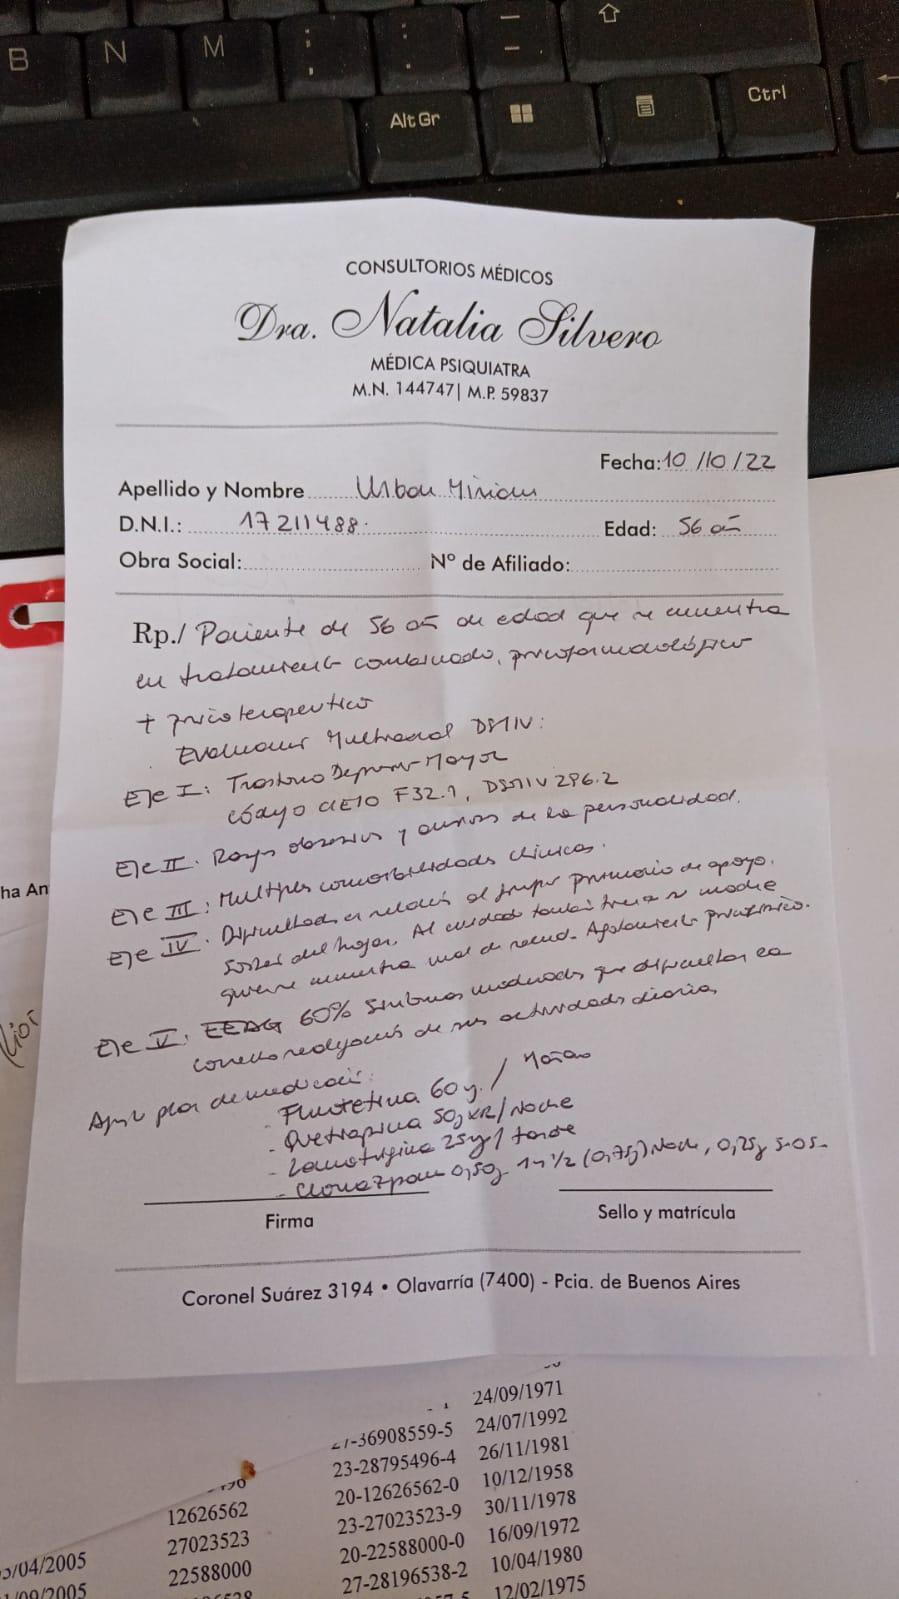 B N M ; , : . _ -
Alt Gr Ctrl
CONSULTORIOS MÉDICOS
Dra. Natalia Silvero
MÉDICA PSIQUIATRA
M.N. 144747| M.P. 59837
Fecha: 10/10/22
Apellido y Nombre Urban Miriam
D.N.I.: 17211488. Edad: 56 añ
Obra Social: Nº de Afiliado:
Rp./ Paciente de 56 añ de edad que se encuentra
en tratamiento combinado, psicofarmacológico
+ psicoterapeutico
Evaluacion Multiaxial DSMIV:
Eje I: Trastorno Depresivo Mayor
código CIE10 F32.1, DSMIV 296.2
Eje II: Rasgos obsesivos y de la personalidad.
Eje III: Multiples comorbilidades clinicas.
Eje IV: Dificultades en relación al grupo primario de apoyo.
Sostén del hogar. Al cuidado también de su madre
quien se encuentra mal de salud. Agotamiento psicofísico.
Eje V: EEAG 60% Sintomas moderados que dificultan la
correcta realización de sus actividades diarias
plan de medicación:
- Fluoxetina 60 / Mañana
- Quetiapina 50 XR/Noche
- Lamotrigina 25 / tarde
- Clonazepam 0,50 1 y 1/2 (0,75) Noche, 0,25 S.O.S.
Firma Sello y matrícula
Coronel Suárez 3194 • Olavarría (7400) - Pcia. de Buenos Aires
ha An
24/09/1971
-36908559-5 24/07/1992
23-28795496-4 26/11/1981
12626562 20-12626562-0 10/12/1958
27023523 23-27023523-9 30/11/1978
/04/2005 22588000 20-22588000-0 16/09/1972
/09/2005 27-28196538-2 10/04/1980
12/02/1975